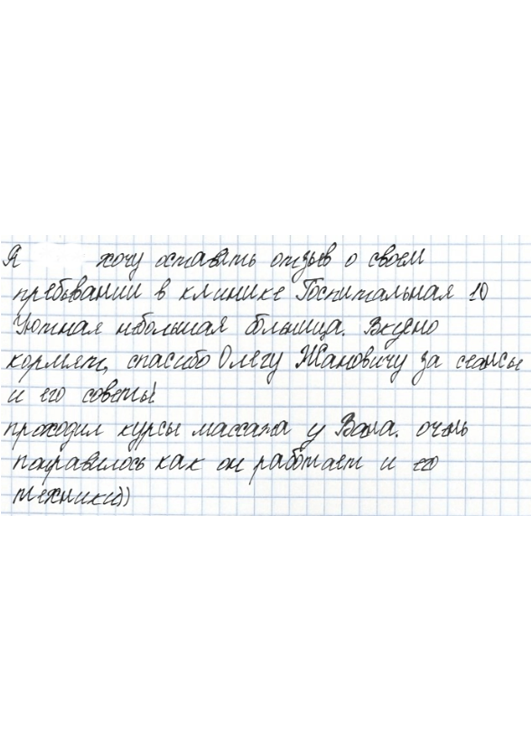 Я хочу оставить отзыв о своем
пребывании в клинике Госпитальная 10
Уютная небольшая больница. Вкусно
кормят, спасибо Олегу Жановичу за сеансы
и его советы!
проходил курсы массажа у Вана. очень
понравилось как он работает и его
техники))